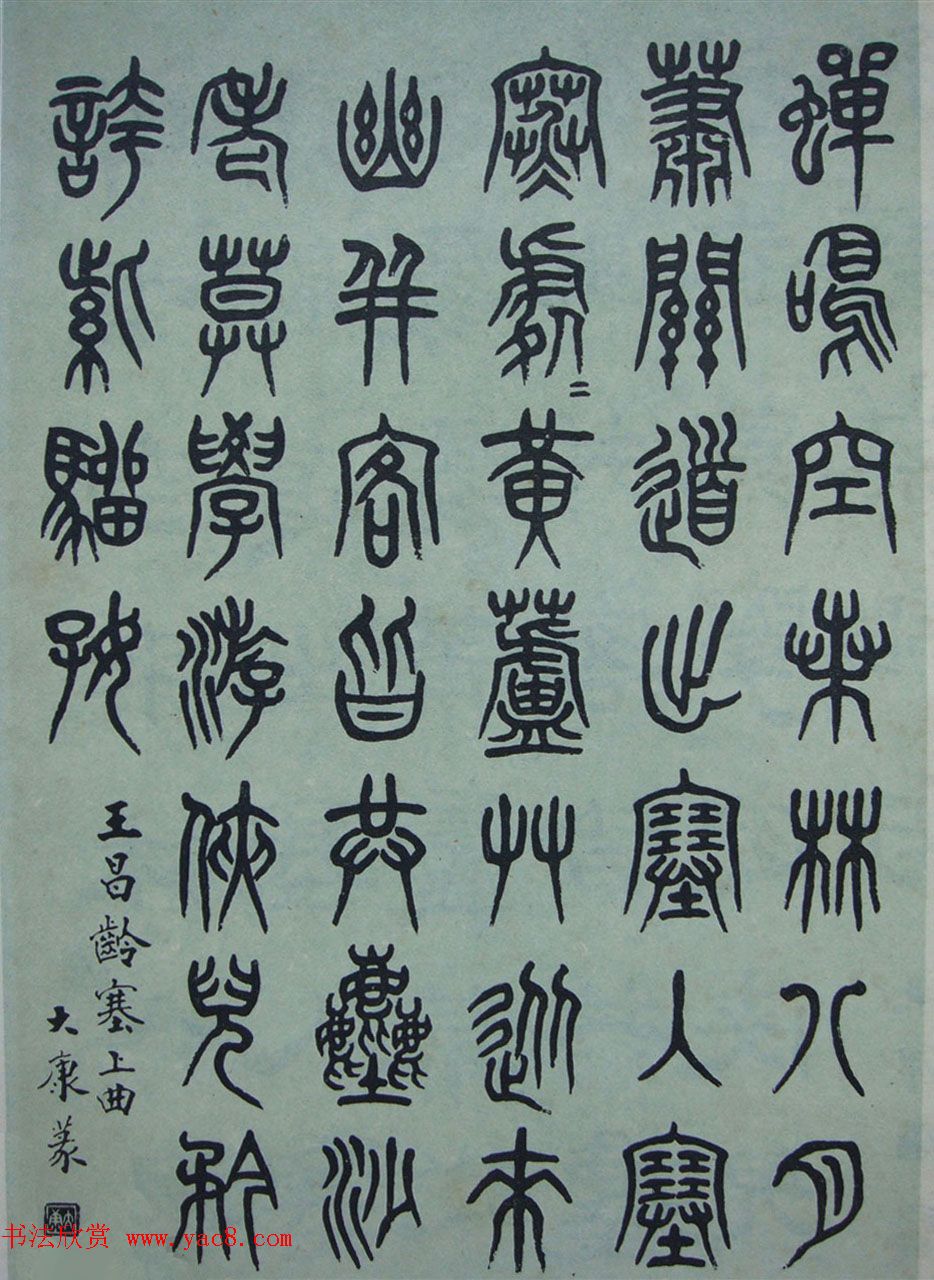 蟬鳴空桑林八月
蕭關道出塞入塞
寒處々黃蘆艸從來
幽并客皆共塵沙
老莫學游俠兒矜
誇紫騮好
王昌齡塞上曲
大康篆
大康
书法欣赏 www.yac8.com